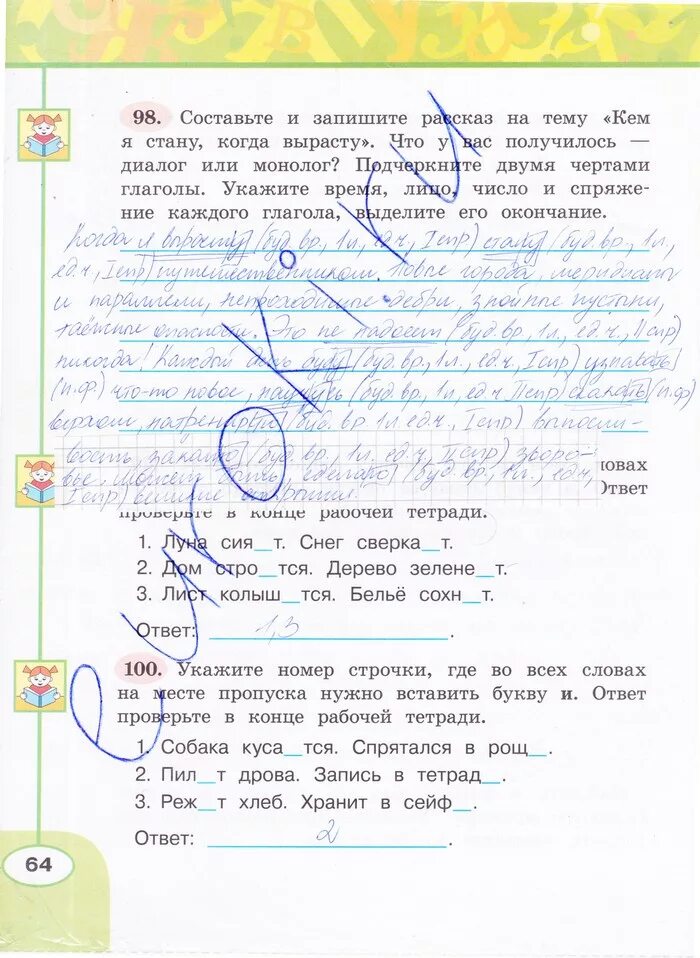 98. Составьте и запишите рассказ на тему «Кем
я стану, когда вырасту». Что у вас получилось —
диалог или монолог? Подчеркните двумя чертами
глаголы. Укажите время, лицо, число и спряже-
ние каждого глагола, выделите его окончание.
Когда я вырасту (буд.вр., 1л., ед.ч., I спр) стану (буд.вр., 1л.,
ед.ч., I спр) путешественником. Новые города, меридианы
и параллели, непроходимые дебри, знойные пустыни,
таёжные опасности. Это не надоест (буд.вр., 1л., ед.ч., II спр)
никогда! Каждый день буду (буд.вр., 1л., ед.ч., I спр) узнавать
(н.ф.) что-то новое, научусь (буд.вр., 1л, ед.ч II спр) скакать (н.ф)
верхом, натренирую (буд.вр., 1л ед.ч., I спр) выносли-
вость, закалю (буд.вр., 1л. ед.ч, II спр) здоро-
вье. Может быть, сделаю (буд.вр., 1л., ед.ч,
I спр) великие открытия.
ловах
Ответ
проверьте в конце рабочей тетради.
1. Луна сия_т. Снег сверка_т.
2. Дом стро_тся. Дерево зелене_т.
3. Лист колыш_тся. Бельё сохн_т.
Ответ: 1,3.
100. Укажите номер строчки, где во всех словах
на месте пропуска нужно вставить букву и. Ответ
проверьте в конце рабочей тетради.
1. Собака куса_тся. Спрятался в рощ_.
2. Пил_т дрова. Запись в тетрад_.
3. Реж_т хлеб. Хранит в сейф_.
Ответ: 2.
64
еуроки.ру